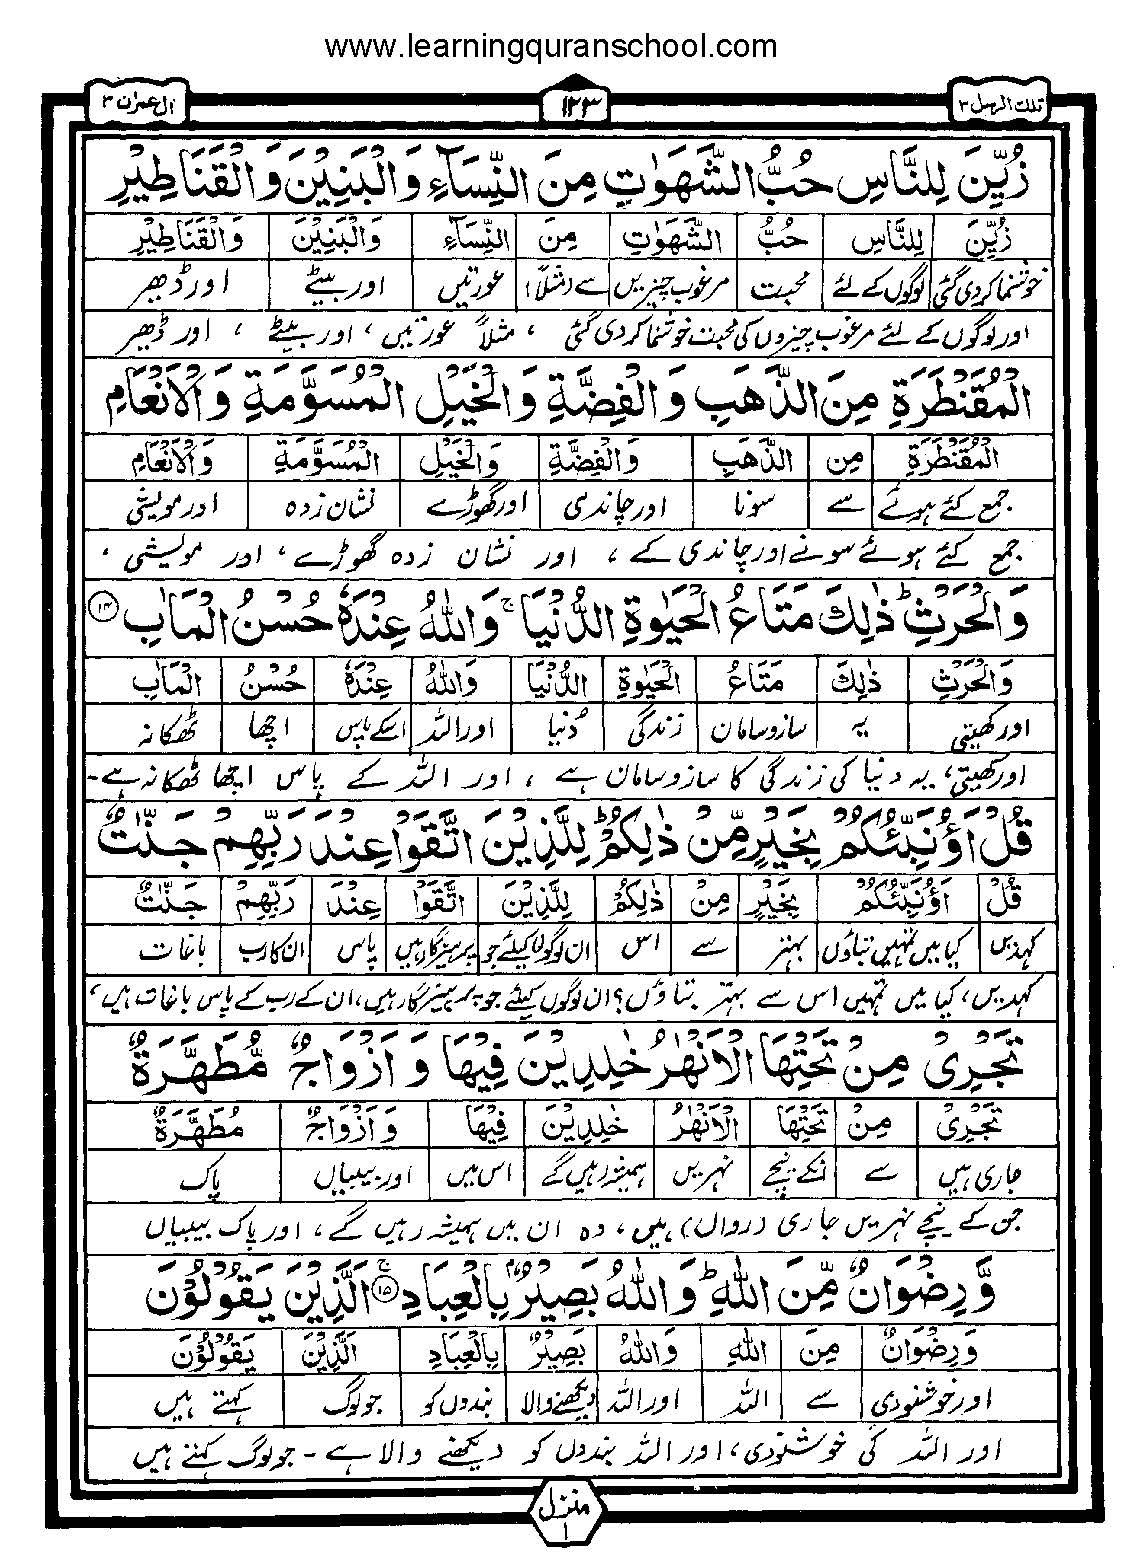 www.learningquranschool.com
تلك الرسل ۳ ۱۲۳ اٰل عمرٰن ۳
زُيِّنَ لِلنَّاسِ حُبُّ الشَّهَوٰتِ مِنَ النِّسَآءِ وَالْبَنِيْنَ وَالْقَنَاطِيْرِ
زُيِّنَ لِلنَّاسِ حُبُّ الشَّهَوٰتِ مِنَ النِّسَآءِ وَالْبَنِيْنَ وَالْقَنَاطِيْرِ
خوشنما کر دی گئی لوگوں کے لئے محبت مرغوب چیزیں سے (مثلاً) عورتیں اور بیٹے اور ڈھیر
اور لوگوں کے لئے مرغوب چیزوں کی محبت خوشنما کر دی گئی ، مثلاً عورتیں ، اور بیٹے ، اور ڈھیر
الْمُقَنْطَرَةِ مِنَ الذَّهَبِ وَالْفِضَّةِ وَالْخَيْلِ الْمُسَوَّمَةِ وَالْاَنْعَامِ
الْمُقَنْطَرَةِ مِنَ الذَّهَبِ وَالْفِضَّةِ وَالْخَيْلِ الْمُسَوَّمَةِ وَالْاَنْعَامِ
جمع کئے ہوئے سے سونا اور چاندی اور گھوڑے نشان زدہ اور مویشی
جمع کئے ہوئے سونے اور چاندی کے ، اور نشان زدہ گھوڑے ، اور مویشی ،
وَالْحَرْثِ ؕ ذٰلِكَ مَتَاعُ الْحَيٰوةِ الدُّنْيَا ۚ وَاللّٰهُ عِنْدَهٗ حُسْنُ الْمَاٰبِ ۱۴
وَالْحَرْثِ ذٰلِكَ مَتَاعُ الْحَيٰوةِ الدُّنْيَا وَاللّٰهُ عِنْدَهٗ حُسْنُ الْمَاٰبِ
اور کھیتی یہ سازوسامان زندگی دُنیا اور اللہ اسکے پاس اچھا ٹھکانہ
اور کھیتی، یہ دنیا کی زندگی کا سازوسامان ہے ، اور اللہ کے پاس اچھا ٹھکانہ ہے۔
قُلْ اَؤُنَبِّئُكُمْ بِخَيْرٍ مِّنْ ذٰلِكُمْ ؕ لِلَّذِيْنَ اتَّقَوْا عِنْدَ رَبِّهِمْ جَنّٰتٌ
قُلْ اَؤُنَبِّئُكُمْ بِخَيْرٍ مِنْ ذٰلِكُمْ لِلَّذِيْنَ اتَّقَوْا عِنْدَ رَبِّهِمْ جَنّٰتٌ
کہدیں کیا میں تمہیں بتاؤں بہتر سے اس ان لوگوں کیلئے جو پرہیزگار ہیں پاس ان کا رب باغات
کہدیں، کیا میں تمہیں اس سے بہتر بتاؤں؟ ان لوگوں کیلئے جو پرہیزگار ہیں، ان کے رب کے پاس باغات ہیں،
تَجْرِيْ مِنْ تَحْتِهَا الْاَنْهٰرُ خٰلِدِيْنَ فِيْهَا وَاَزْوَاجٌ مُّطَهَّرَةٌ
تَجْرِيْ مِنْ تَحْتِهَا الْاَنْهٰرُ خٰلِدِيْنَ فِيْهَا وَاَزْوَاجٌ مُطَهَّرَةٌ
جاری ہیں سے انکے نیچے نہریں ہمیشہ رہیں گے اس میں اور بیبیاں پاک
جن کے نیچے نہریں جاری (رواں) ہیں، وہ ان میں ہمیشہ رہیں گے ، اور پاک بیبیاں
وَّرِضْوَانٌ مِّنَ اللّٰهِ ؕ وَاللّٰهُ بَصِيْرٌۢ بِالْعِبَادِ ۚ ۱۵ اَلَّذِيْنَ يَقُوْلُوْنَ
وَرِضْوَانٌ مِنَ اللّٰهِ وَاللّٰهُ بَصِيْرٌ بِالْعِبَادِ اَلَّذِيْنَ يَقُوْلُوْنَ
اور خوشنودی سے اللہ اور اللہ دیکھنے والا بندوں کو جو لوگ کہتے ہیں
اور اللہ کی خوشنودی، اور اللہ بندوں کو دیکھنے والا ہے۔ جو لوگ کہتے ہیں
منزل
۱